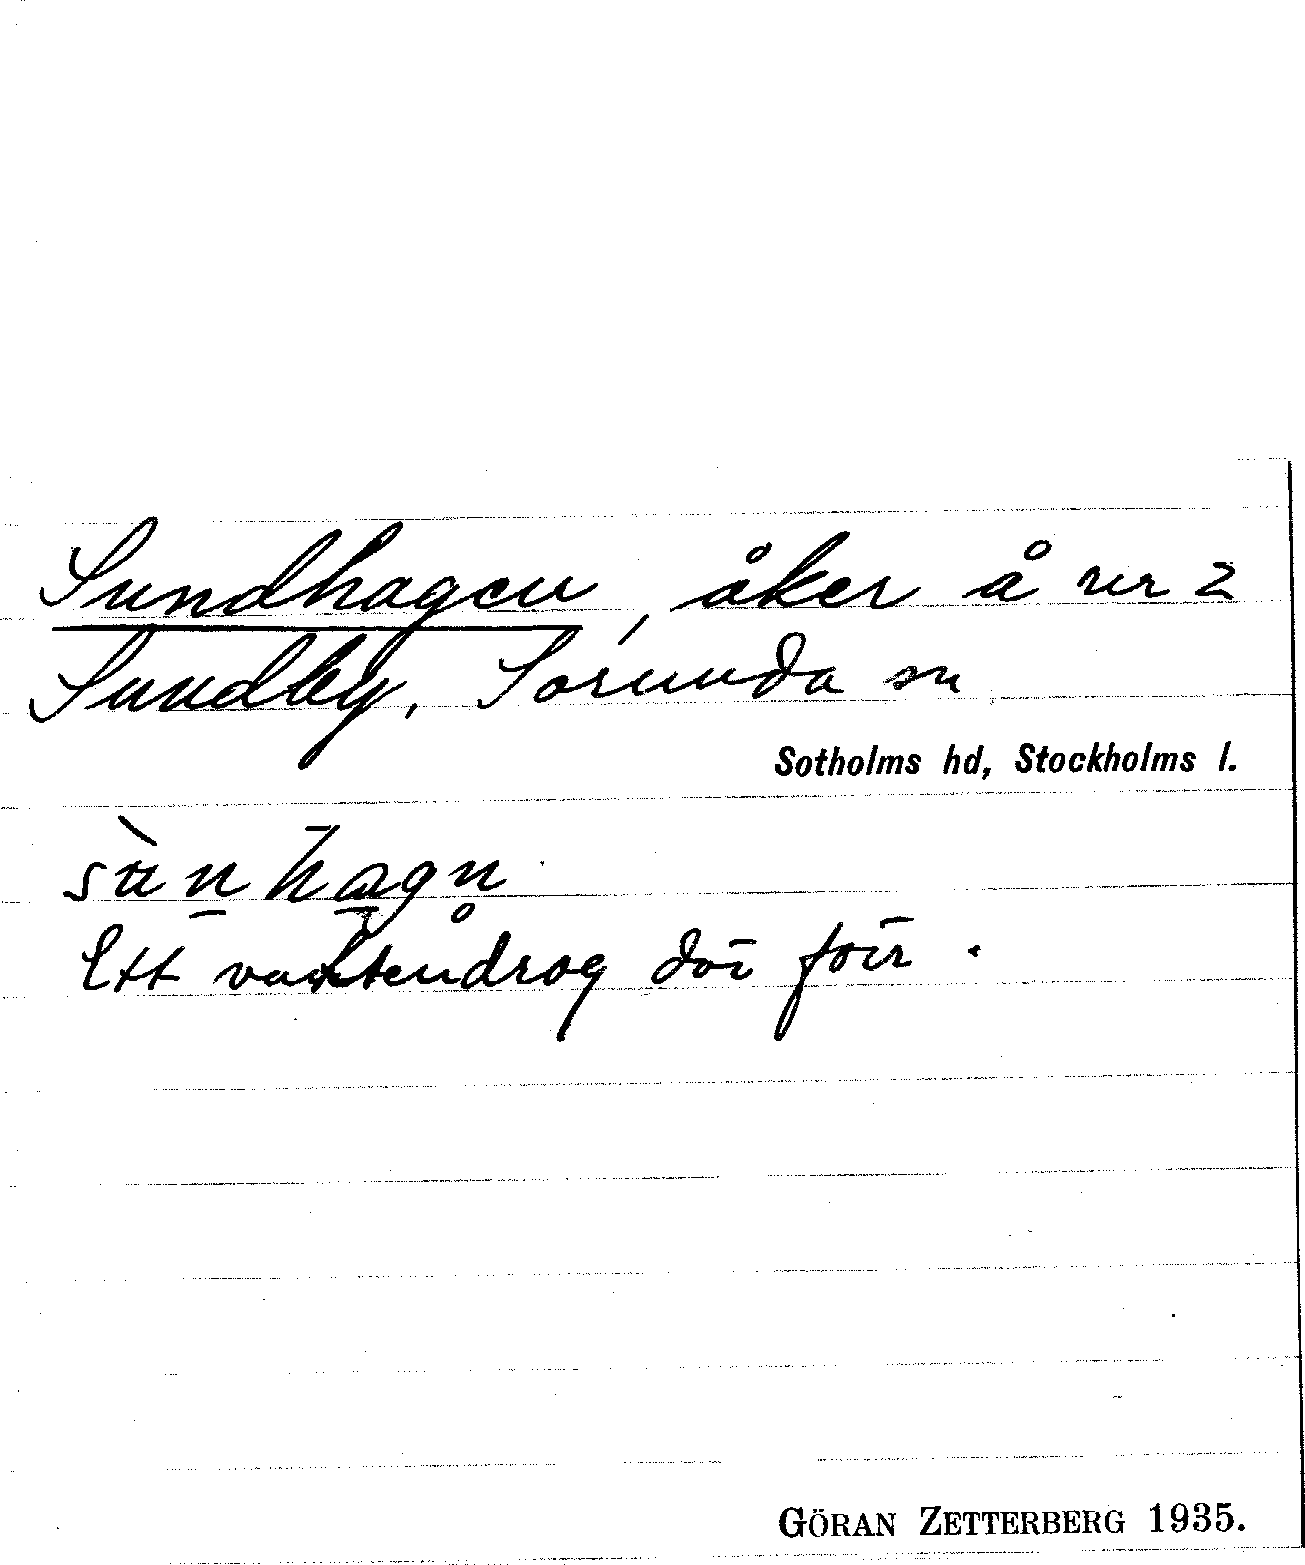 Sundhagen, åker å nr 2
Sundby, Sorunda sn
Sotholms hd, Stockholms l.
Ett vattendrag
GÖRAN ZETTERBERG 1935.